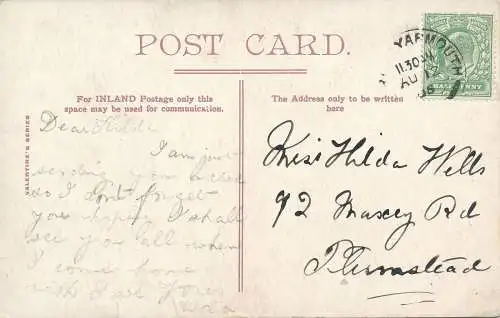 POST CARD.
YARMOUTH
11.30
AU 19
HALFPENNY
For INLAND Postage only this
space may be used for communication.
The Address only to be written
here
VALENTINE'S SERIES
Dear Hilda
I am just
sending you a
so I don't forget
you hoping I shall
see you all when
I come home
with love from
Miss Hilda Wells
92 Maxey Rd
Plumstead